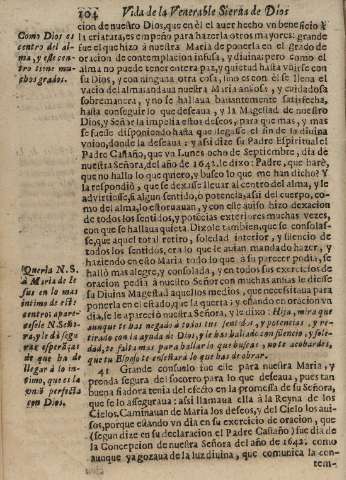 104 Vida de la Venerable Sierva de Dios
Como Dios es
centro del al-
ma, y este cen-
tro tiene mu-
chos grados.
cion de nuestro Dios, que en èl auer hecho vn beneficio à
la criatura, es empeño para hazerla otros mayores: grande
fue el que hizo à nuestra Maria de ponerla en el grado de
oracion de contemplacion infusa, y diuina: pero como el
alma no puede tener entera paz, y quietud hasta vnirse con
su Dios, y con ninguna otra cosa, sino es con èl se llena el
vacio del alma: andaua nuestra Maria ansiosa, y cuidadosa
sobremanera, y no se hallaua bastantemente satisfecha,
hasta conseguir lo que deseaua, y la Magestad de nuestro
Dios, y Señor la impelia estos deseos, para que mas, y mas
se fuesse disponiendo hasta que llegasse el fin de la diuina
vnion, donde la deseaua: y assi dize su Padre Espiritual el
Padre Castaño, que vn Lunes ocho de Septiembre, dia de
nuestra Señora, del año de 1642. le dixo: Padre, que harè,
que no hallo lo que quiero, y busco lo que me han dicho? Y
la respondiò, que se dexasse lleuar al centro del alma, y le
advirtiesse, si algun sentido, ò potencia, assi del cuerpo, co-
mo del alma, lo estorauan, y con elle quiso hizo dexacion
de todos los sentidos, y potencias exteriores muchas vezes,
con que se hallaua quieta. Dixole tambien, que se consolas-
se, que aquel total retiro, soledad interior, y silencio de
todos los sentidos, era lo que le auian mandado hazer, y
haziendo en esto Maria todo lo que à su parecer podia, se
hallò mas alegre, y consolada, y en todos sus exercicios de
oracion pedia à nuestro Señor con muchas ansias le diesse
su Diuina Magestad aquellos medios, que necessitaua para
ponerla en el estado, que la queria: y estando en oracion vn
dia, se le apareciò nuestra Señora, y le dixo: Hija, mira que
aunque te has negado à todos tus sentidos, y potencias, y re-
tirado con la ayuda de Dios, y te has hallado con silencio, y sole-
dad, te falta mas para hallar lo que buscas, no te acobardes,
que tu Esposo te enseñarà lo que has de obrar.
Queria N.S.
à Maria de Ie
sus en lo mas
intimo de este
centro: apare-
cesele N. Seño-
ra, y le dà segu-
ras esperanças
de que ha de
llegar à lo in-
timo, que es la
vniõ perfecta
con Dios.
41 Grande consuelo fue elle para nuestra Maria, y
prenda segura del socorro para lo que deseaua, pues tan
buena fiadora tenia del efecto en la promessa de su Señora,
que se lo asseguraua: assi llamaua ella à la Reyna de los
Cielos. Caminauan de Maria los deseos, y del Cielo los aui-
sos, porque estando vn dia en su exercicio de oracion, que
(segun dize en su declaracion el Padre Castaño) fue dia de
la Concepcion de nuestra Señora del año de 1642. como
aunque ya gozaua de la luz diuina, que comunica la con-
tem-